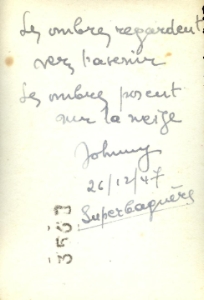 Les ombres regardent
vers l'avenir
Les ombres posent
sur la neige
Johnny
26/12/47
Superbagnères